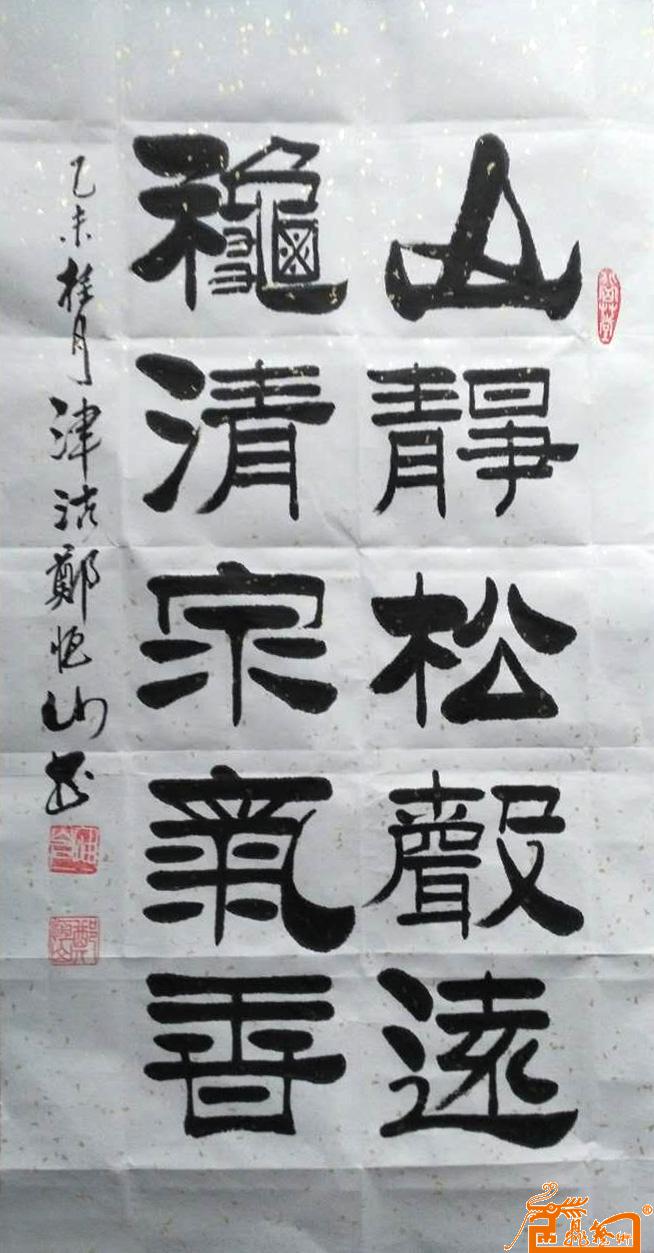 山靜松聲遠
龝清泉氣香
乙未桂月津沽鄭恒山书